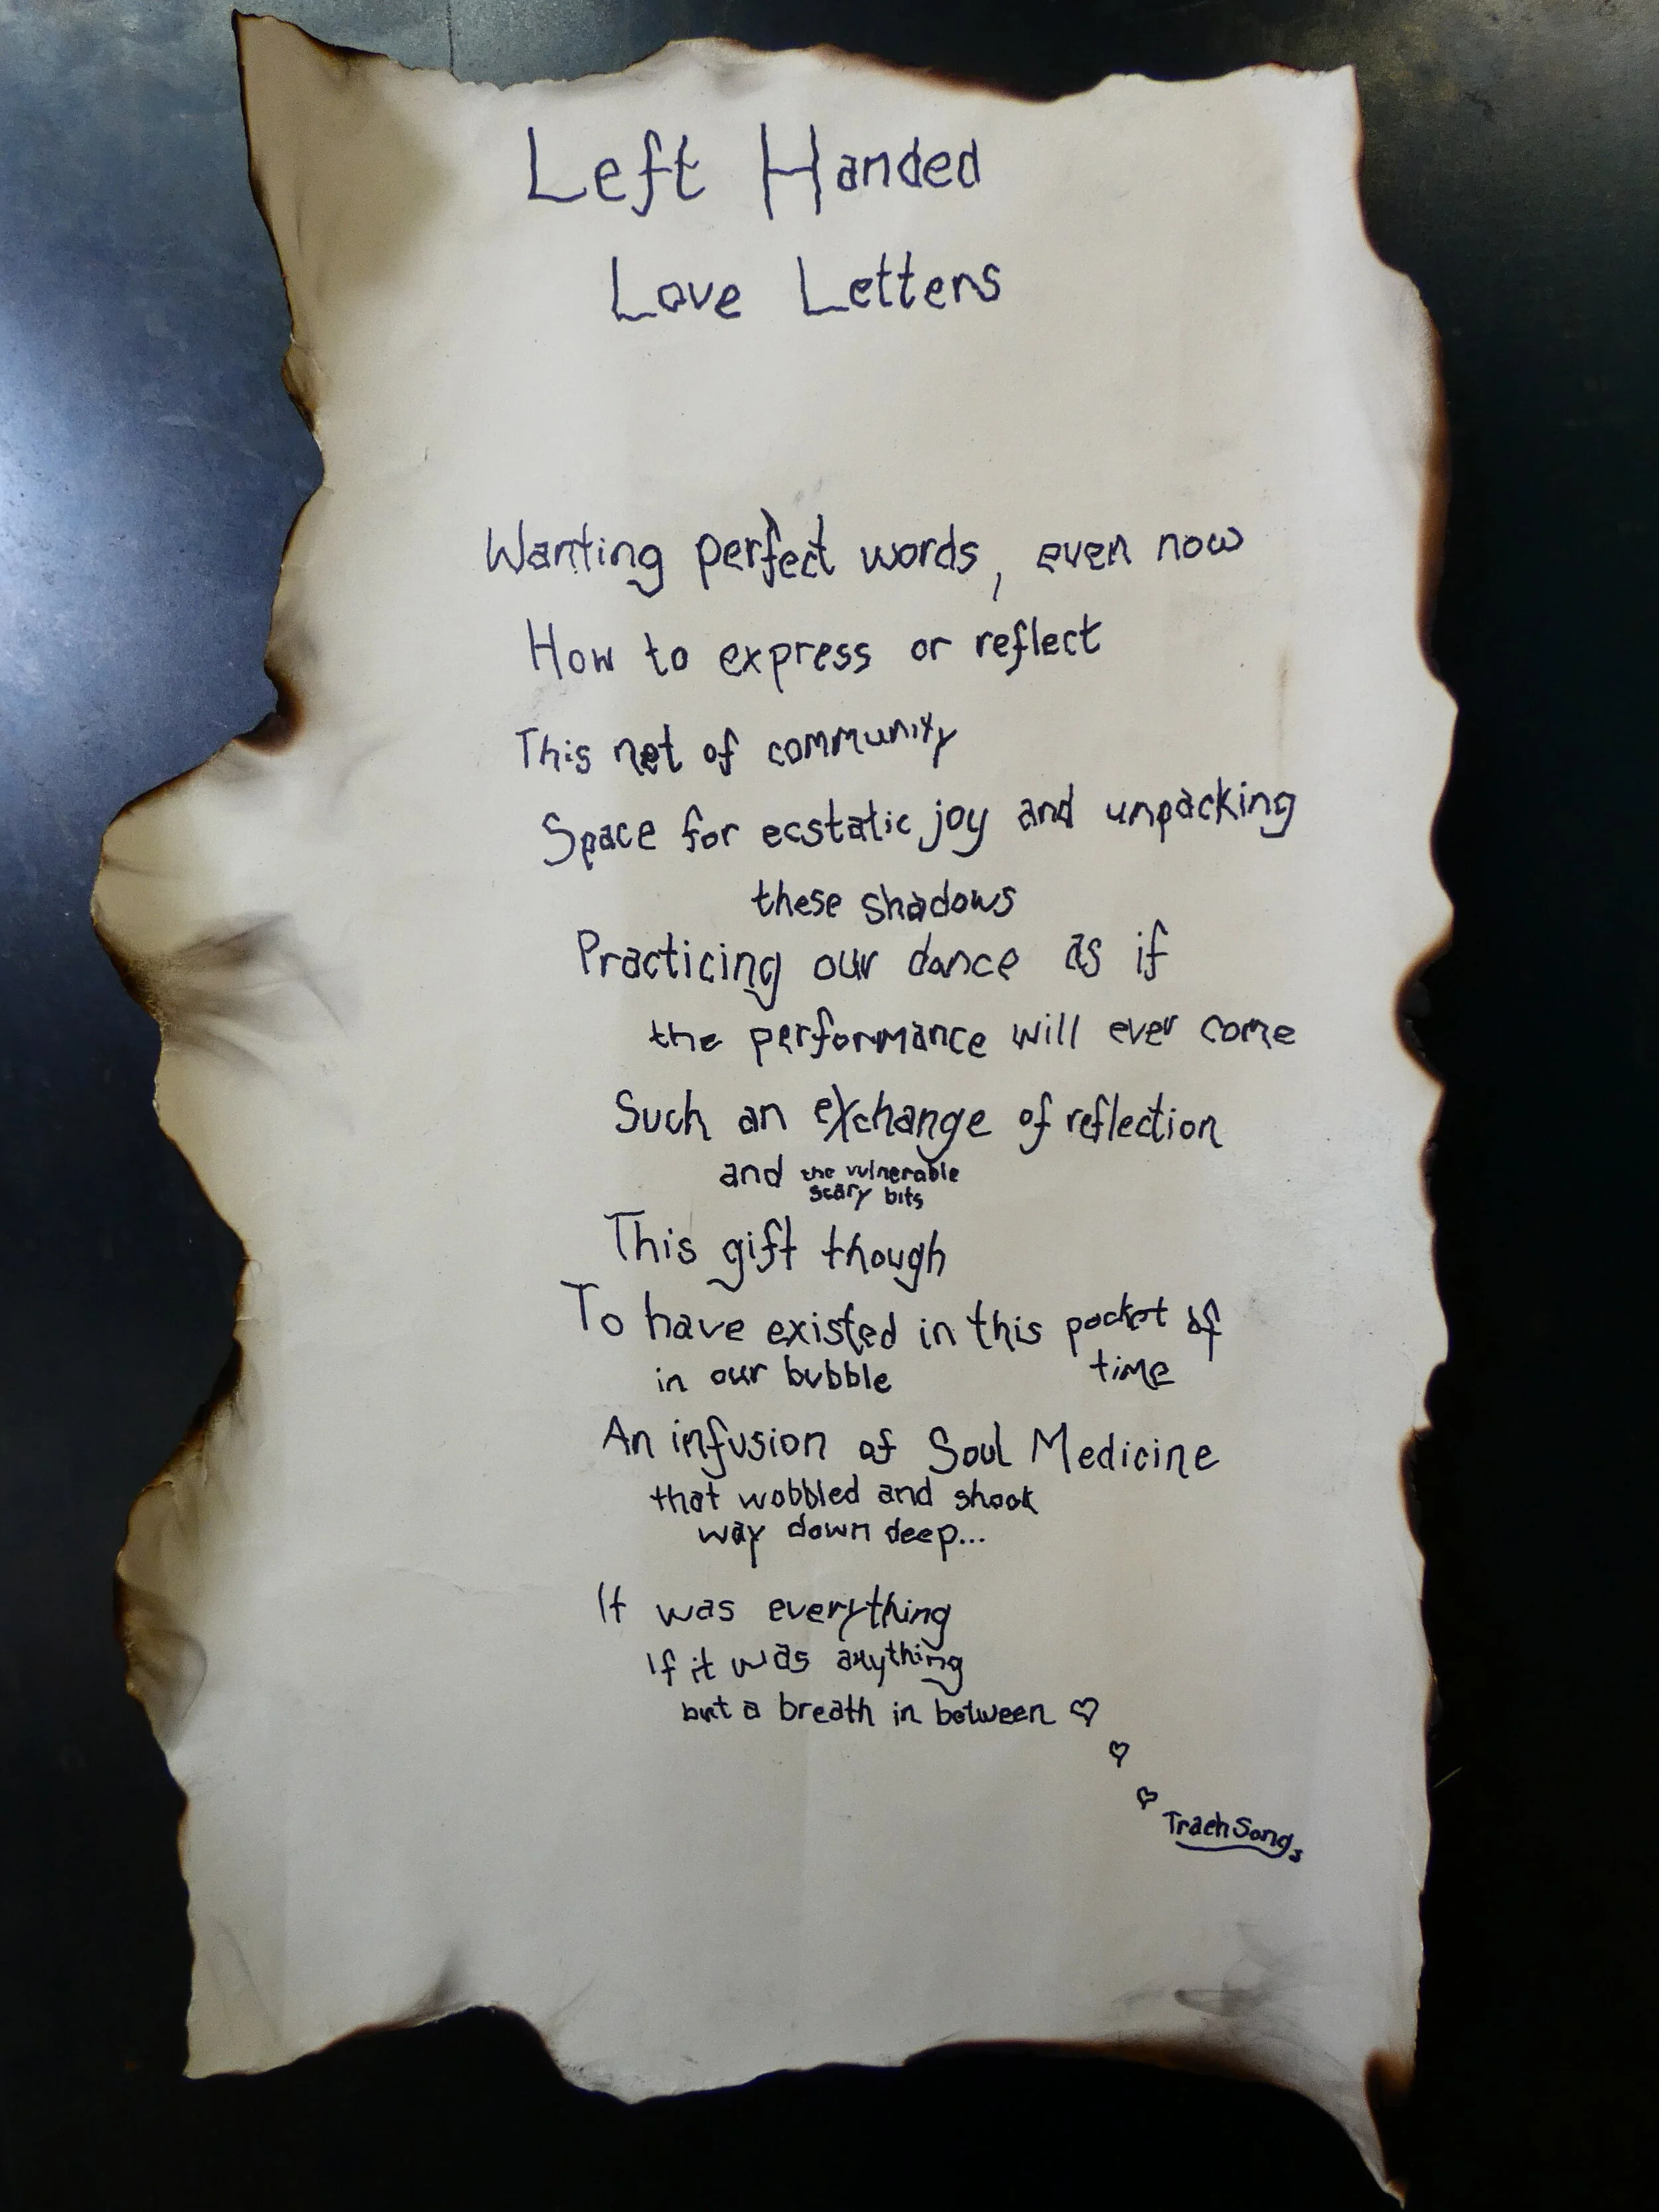 Left Handed
Love Letters
Wanting perfect words, even now
How to express or reflect
This net of community
Space for ecstatic joy and unpacking
these shadows
Practicing our dance as if
the performance will ever come
Such an exchange of reflection
and the vulnerable
scary bits
This gift though
To have existed in this pocket of
time
in our bubble
An infusion of Soul Medicine
that wobbled and shook
way down deep...
It was everything
If it was anything
but a breath in between ♡
♡
♡
TraehSongs